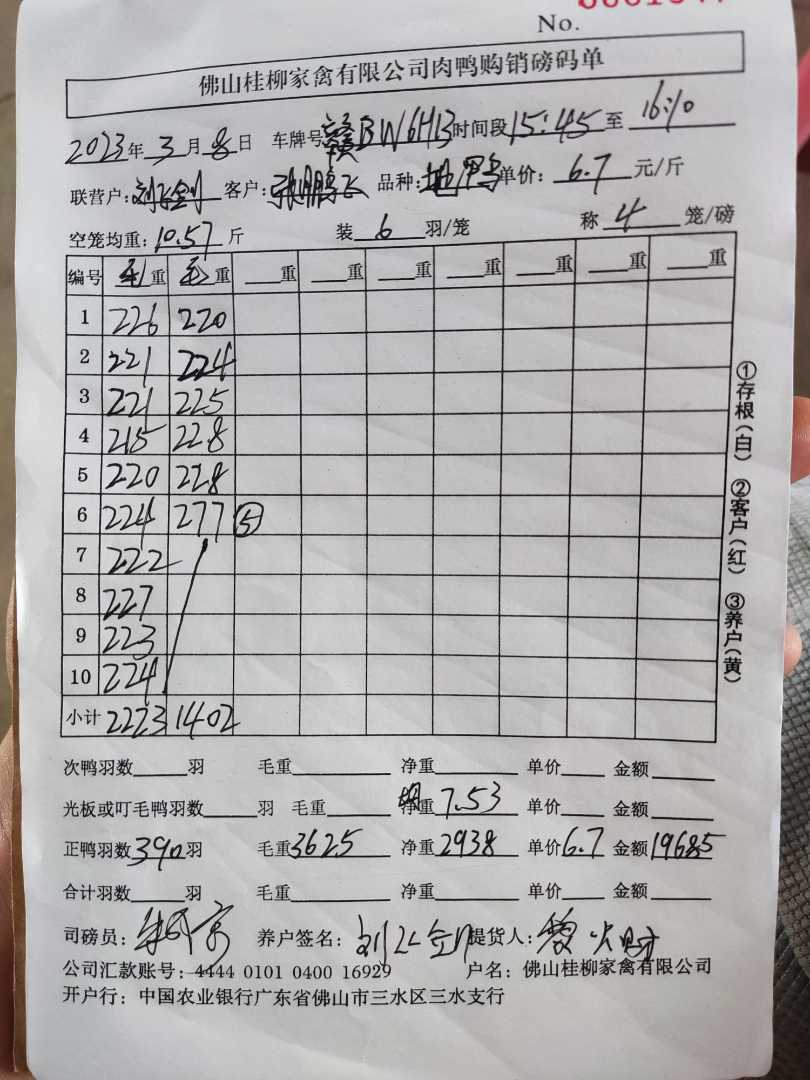 No.
佛山桂柳家禽有限公司肉鸭购销磅码单
2023年3月8日 车牌号赣BW6H13时间段15:45至16:10
联营户: 客户:张鹏飞 品种: 单价:6.7元/斤
空笼均重:10.57斤 装6羽/笼 称4笼/磅
编号 毛重 毛重 重 重 重 重 重 重 重
1 226 220
2 221 224
3 221 225
4 215 228
5 220 228
6 224 277 ⑤
7 222
8 227
9 223
10 224
小计 2223 1402
①存根(白) ②客户(红) ③养户(黄)
次鸭羽数 羽 毛重 净重 单价 金额
光板或叮毛鸭羽数 羽 毛重 净重7.53 单价 金额
正鸭羽数390羽 毛重3625 净重2938 单价6.7 金额19685
合计羽数 羽 毛重 净重 单价 金额
司磅员: 养户签名: 提货人:
公司汇款账号:4444 0101 0400 16929 户名:佛山桂柳家禽有限公司
开户行:中国农业银行广东省佛山市三水区三水支行